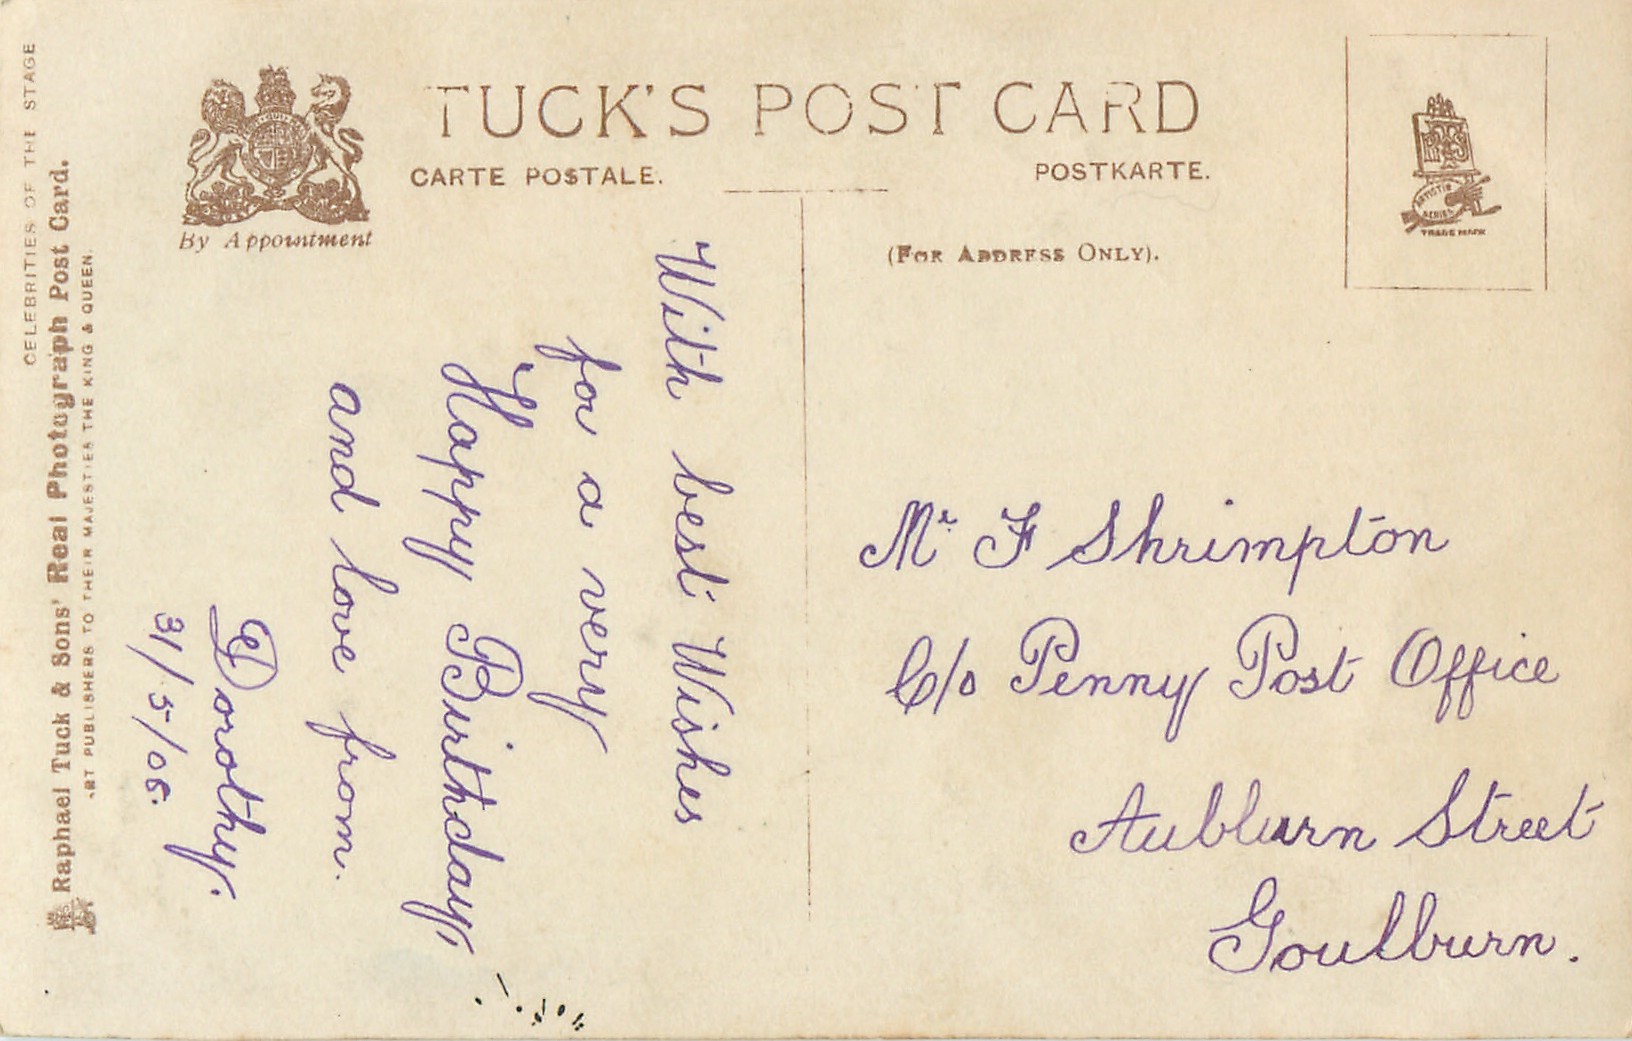 CELEBRITIES OF THE STAGE
Raphael Tuck & Sons' Real Photograph Post Card.
ART PUBLISHERS TO THEIR MAJESTIES THE KING & QUEEN.
By Appointment
TUCK'S POST CARD
CARTE POSTALE.
POSTKARTE.
(FOR ADDRESS ONLY).
ARTISTIC
SERIES
TRADE MARK
With best Wishes
for a very
Happy Birthday,
and love from.
Dorothy.
31/5/08.
Mr F Shrimpton
C/o Penny Post Office
Aubburn Street
Goulburn.